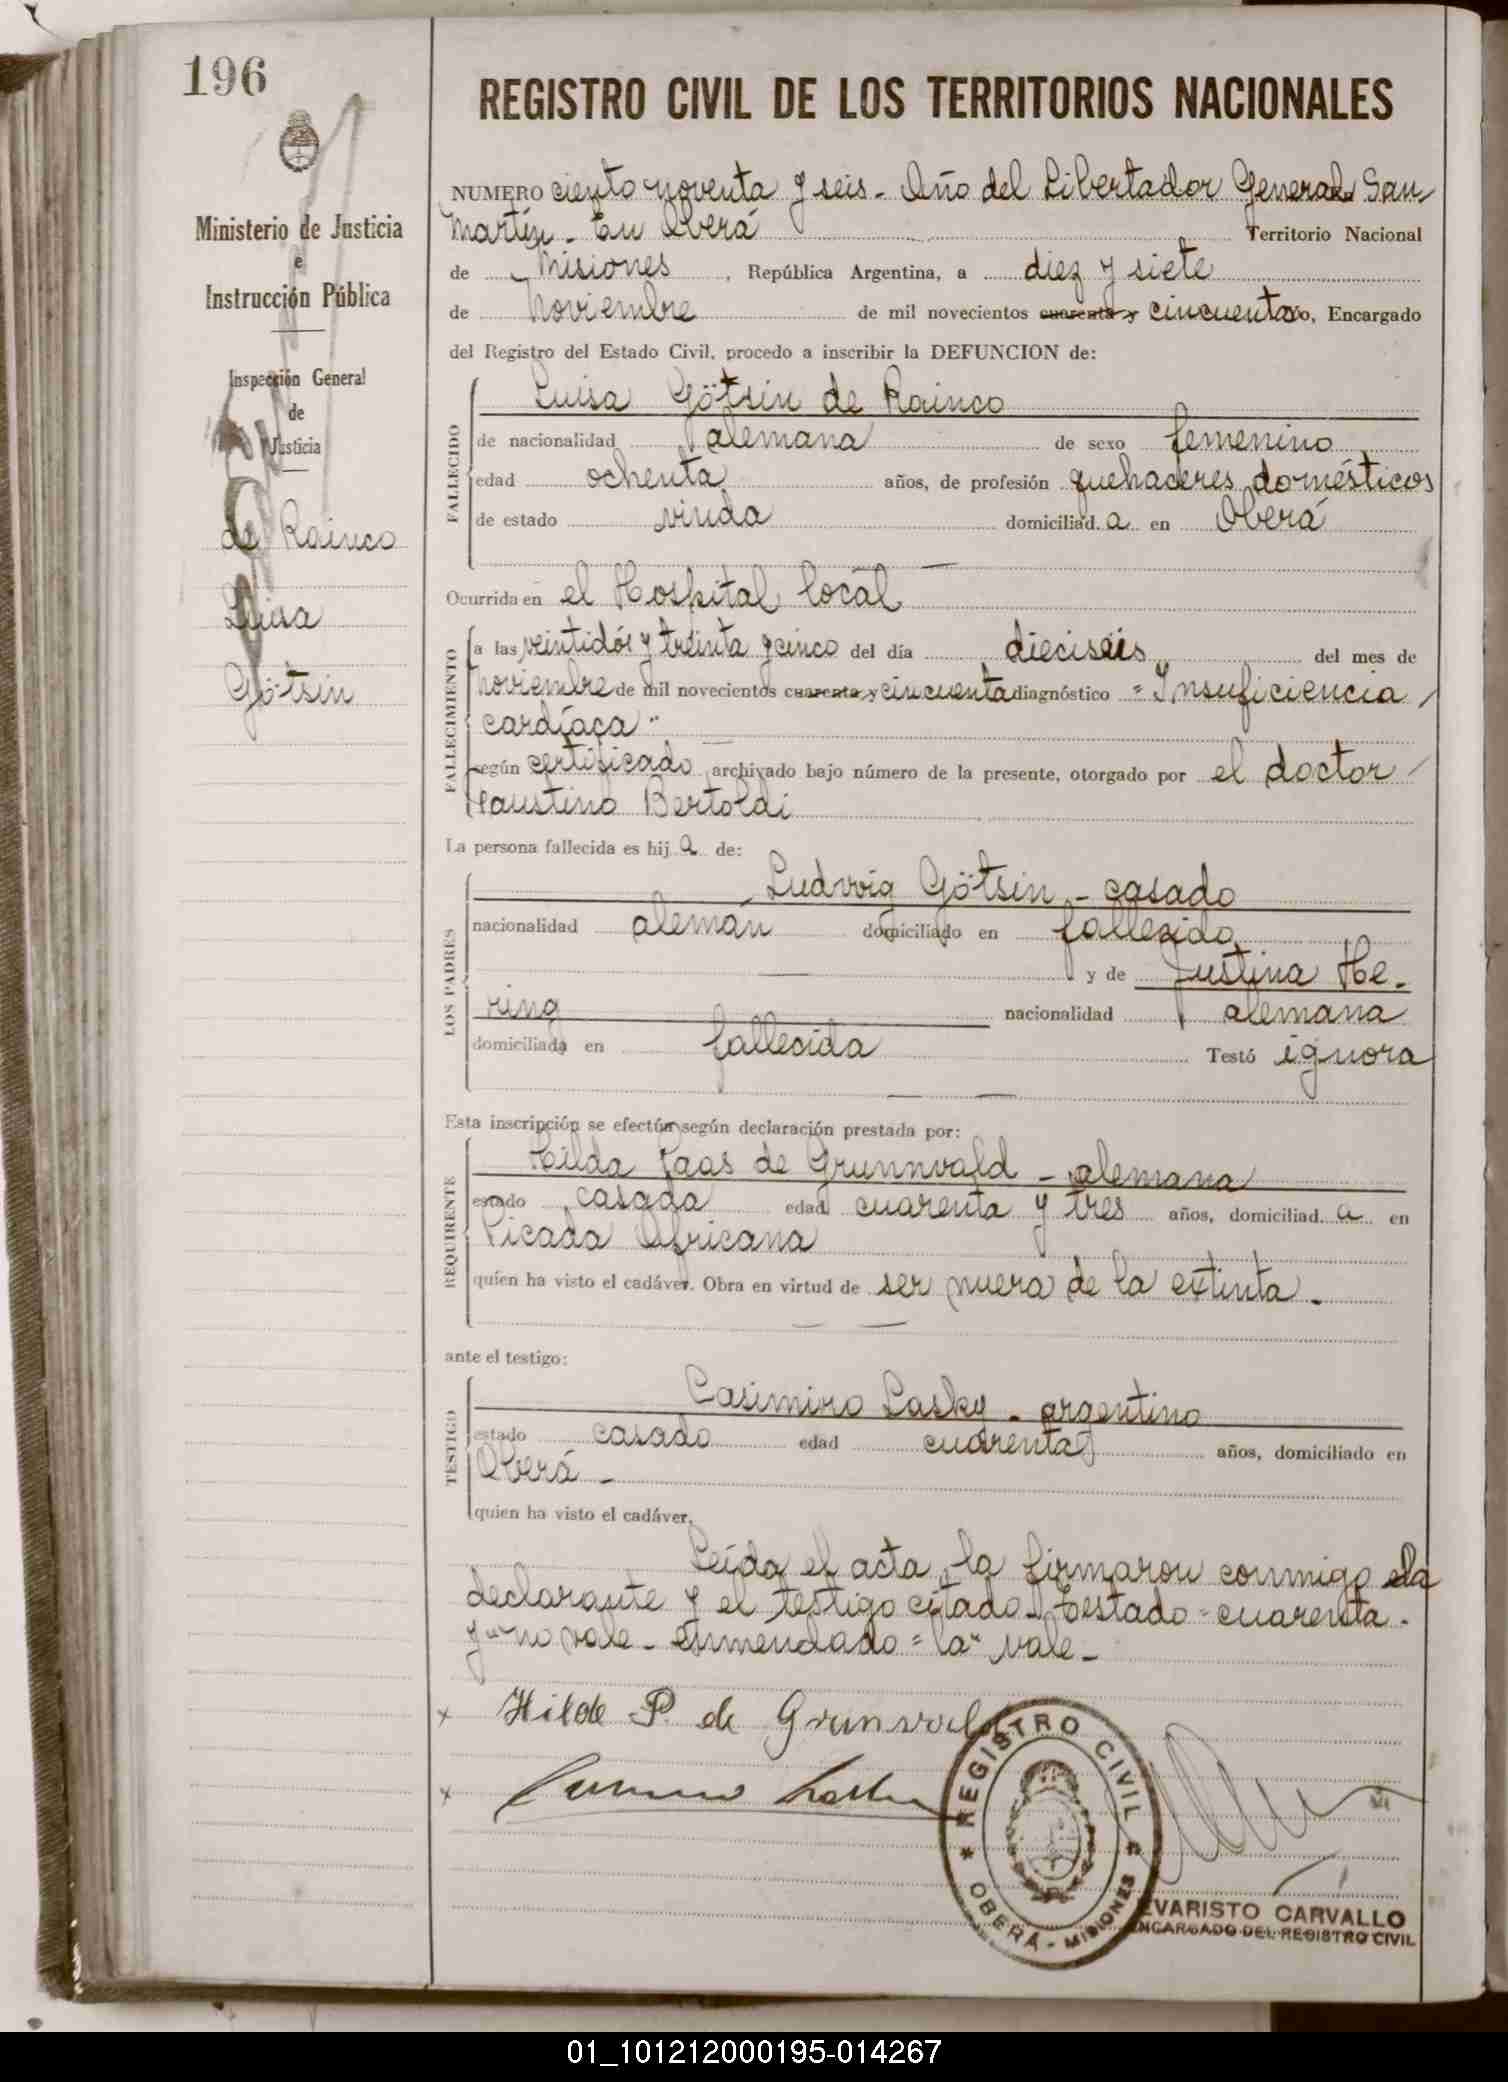 196
REGISTRO CIVIL DE LOS TERRITORIOS NACIONALES
Ministerio de Justicia
e
Instrucción Pública
Inspección General
de
Justicia
de Rainco
Luisa
Götsin
NUMERO ciento noventa y seis - Año del Libertador General San
Martín - En Oberá Territorio Nacional
de Misiones, República Argentina, a diez y siete
de Noviembre de mil novecientos cuarenta y cincuenta yo, Encargado
del Registro del Estado Civil, procedo a inscribir la DEFUNCION de:
FALLECIDO
Luisa Götsin de Rainco
de nacionalidad alemana de sexo femenino
edad ochenta años, de profesión quehaceres domésticos
de estado viuda domiciliad a en Oberá
Ocurrida en el Hospital local
FALLECIMIENTO
a las veintidós y treinta y cinco del día dieciseis del mes de
Noviembre de mil novecientos cuarenta y cincuenta diagnóstico "Insuficiencia
cardíaca"
según certificado archivado bajo número de la presente, otorgado por el doctor
Faustino Bertoldi
La persona fallecida es hij a de:
LOS PADRES
Ludwig Götsin - casado
nacionalidad alemán domiciliado en fallecido
y de Justina He-
ring nacionalidad alemana
domiciliada en fallecida Testó ignora
Esta inscripción se efectúa según declaración prestada por:
REQUIRENTE
Hilda Paas de Grunnwald - alemana
estado casada edad cuarenta y tres años, domiciliad a en
Picada Africana
quien ha visto el cadáver. Obra en virtud de ser nuera de la extinta.
ante el testigo:
TESTIGO
Casimiro Lasky - argentino
estado casado edad cuarenta años, domiciliado en
Oberá -
quien ha visto el cadáver.
Leída el acta, la firmaron conmigo la
declarante y el testigo citado - Testado = cuarenta
y" no vale - enmendado = la" vale -
x Hilde P. de Grunwald
x
REGISTRO CIVIL
OBERÁ - MISIONES
EVARISTO CARVALLO
ENCARGADO DEL REGISTRO CIVIL
01_101212000195-014267